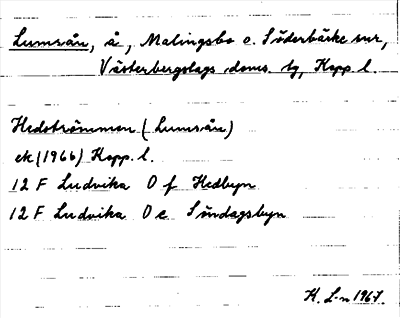 Lumsån, å, Malingsbo o. Söderbärke snr,
Västerbergslags doms. tg, Kopp l.
Hedströmmen (Lumsån)
ek (1966) Kopp. l.
12 F Ludvika 0 f Hedbyn
12 F Ludvika 0 e Söndagsbyn
H. L-n 1967.